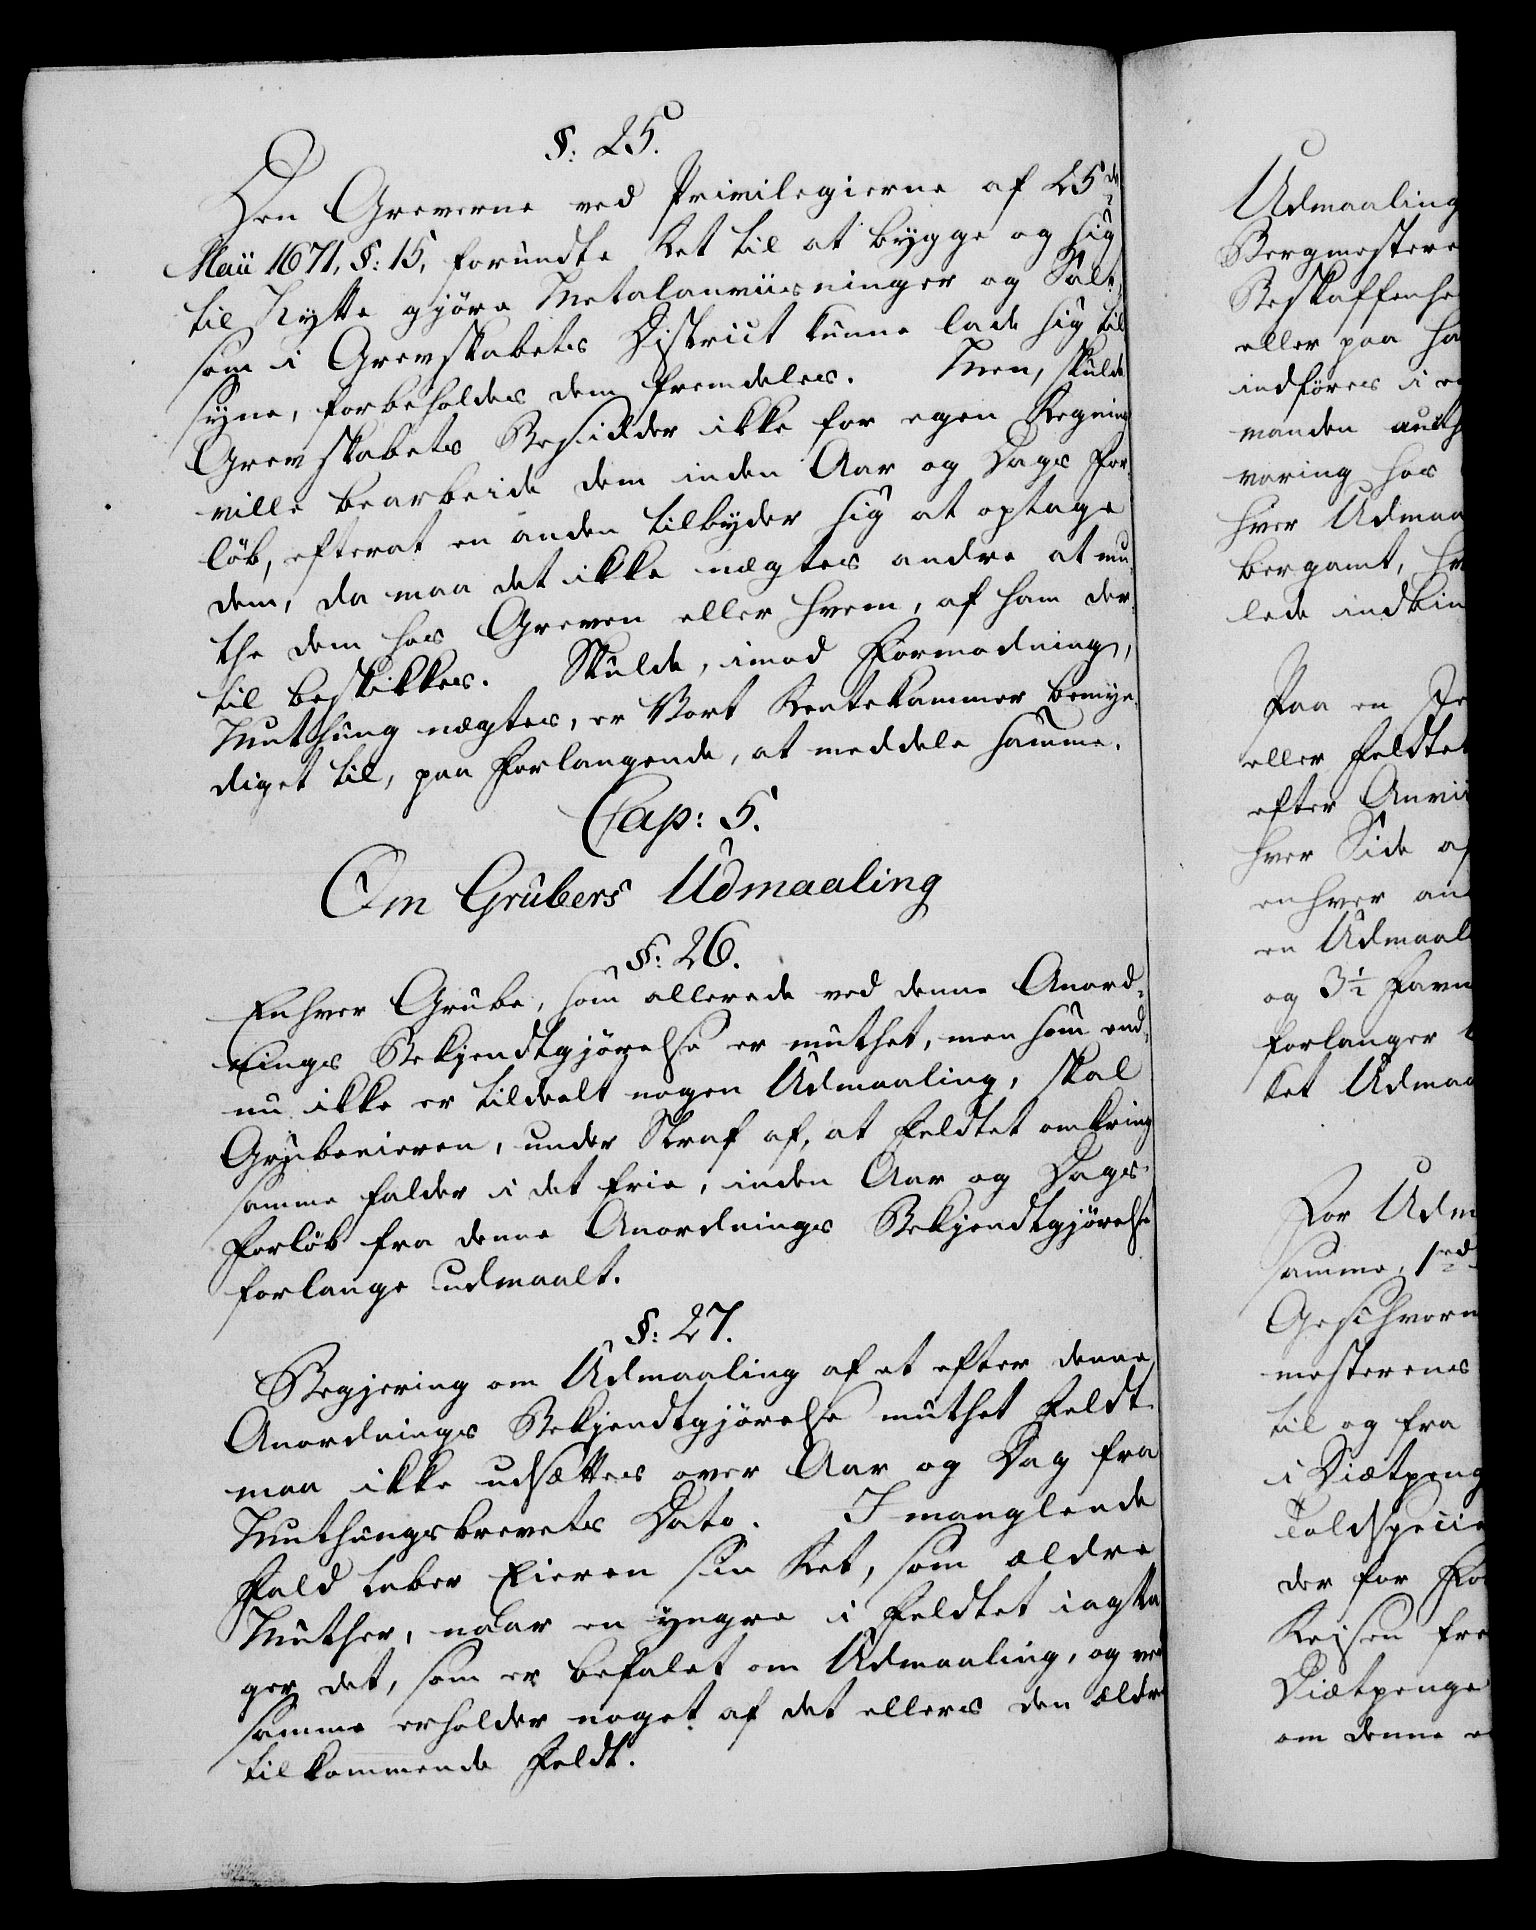 §: 25.
Den Greverne ved Privilegierne af 25de
Maii 1671, §: 15, forundte Ret til at bygge og sig
til Nytte gjöre Metalanviisninger og Salt,
som i Grevskabets District kunne lade sig til
syne, forbeholdes dem fremdeles. Men, skulde
Grevskabets Besidder ikke for egen Regning
ville bearbeide dem inden Aar og Dags For-
löb, efterat en anden tilbyder sig at optage
dem, da maa det ikke nægtes andre at mu-
the dem hos Greven eller hvem, af ham der-
til beskikkes. Skulde, imod Formodning,
Muthung nægtes, er Vort Rentekammer bemyn-
diget til, paa Forlangende, at meddele samme.
Cap: 5.
Om Grubers Udmaaling
§: 26.
Enhver Grube, som allerede ved denne Anord-
nings Bekjendtgjörelse er muthet, men som end-
nu ikke er tildeelt nogen Udmaaling, skal
Grubeeieren, under Straf af, at Feldtet omkring
samme falder i det frie, inden Aar og Dags-
Forlöb fra denne Anordnings Bekjendtgjörelse
forlange udmaalt.
§: 27.
Begjering om Udmaaling af et efter denne
Anordnings Bekjendtgjörelse muthet Feldt
maa ikke udsættes over Aar og Dag fra
Muthungsbrevets Dato. I manglende
Fald taber Eieren sin Ret, som ældre
Muther, naar en yngre i Feldtet iagtta-
ger det, som er befalet om Udmaaling, og ved
samme erholder noget af det ellers den ældre
tilkommende Feldt.
Udmaaling
Bergmestere
Beskaffenhe
eller paa ha
indföres i e
manden auth
varing hos
hver Udmaa
bergamt, hv
lede indbin
Paa en
eller Feldtet
efter Anvii
hver Side af
enhver an
en Udmaal
og 3½ Favn
forlanger
tet Udmaa
For Udm
samme, 1 rd
Geschvorn
mesterens
til og fra
i Diætpeng
Toldspecie
der for
Reisen fre
Diætpenge
om denne e